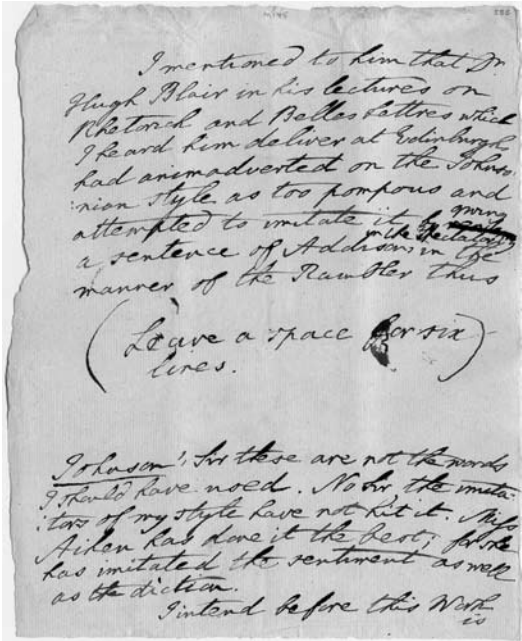 M145
I mentioned to him that Dr.
Hugh Blair in his lectures on
Rhetorick and Belles Lettres which
I heard him deliver at Edinburgh
had animadverted on the Johnso
:nian style as too pompous and
attempted to imitate it by giving
a sentence of Addisons in the Spectator in the
manner of the Rambler thus
(Leave a space for six
lines.)
Johnson: Sir these are not the words
I should have used. No Sir, the imita
:tors of my style have not hit it. Miss
Aiken has done it the best; for she
has imitated the sentiment as well
as the diction.
I intend before this Work
is